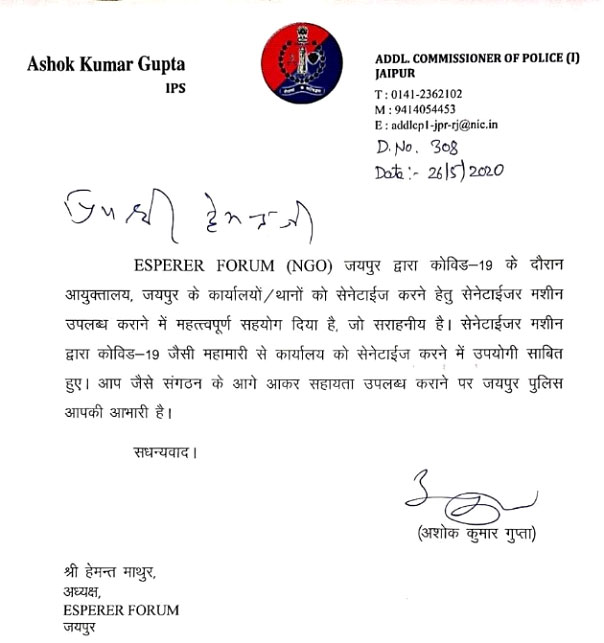 Ashok Kumar Gupta
IPS
ADDL. COMMISSIONER OF POLICE (I)
JAIPUR
T : 0141-2362102
M : 9414054453
E : addlcp1-jpr-rj@nic.in
D. No. 308
Date :- 26/5/2020
प्रिय श्री हेमन्त जी
ESPERER FORUM (NGO) जयपुर द्वारा कोविड–19 के दौरान
आयुक्तालय, जयपुर के कार्यालयों/थानों को सेनेटाईज करने हेतु सेनेटाईजर मशीन
उपलब्ध कराने में महत्त्वपूर्ण सहयोग दिया है, जो सराहनीय है। सेनेटाईजर मशीन
द्वारा कोविड–19 जैसी महामारी से कार्यालय को सेनेटाईज करने में उपयोगी साबित
हुए। आप जैसे संगठन के आगे आकर सहायता उपलब्ध कराने पर जयपुर पुलिस
आपकी आभारी है।
सधन्यवाद।
(अशोक कुमार गुप्ता)
श्री हेमन्त माथुर,
अध्यक्ष,
ESPERER FORUM
जयपुर